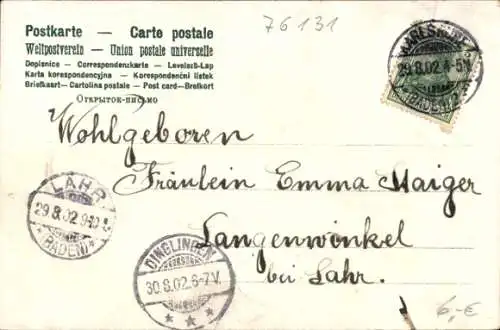 Postkarte – Carte postale
Weltpostverein – Union postale universelle
Dopisnice – Correspondenzkarte – Levelező-Lap
Karta korespondencyjna – Korespondenční lístek
Briefkaart – Cartolina postale – Post card – Brefkort
Открыток-письмо
76131
KARLSRUHE
29.8.02.4-5N
(BADEN) 2
Wohlgeboren
Fräulein Emma Maiger
Langenwinkel
bei Lahr.
LAHR
29.8.02.9-10
(BADEN)
DINGLINGEN
30.8.02.6-7V.
6,-€